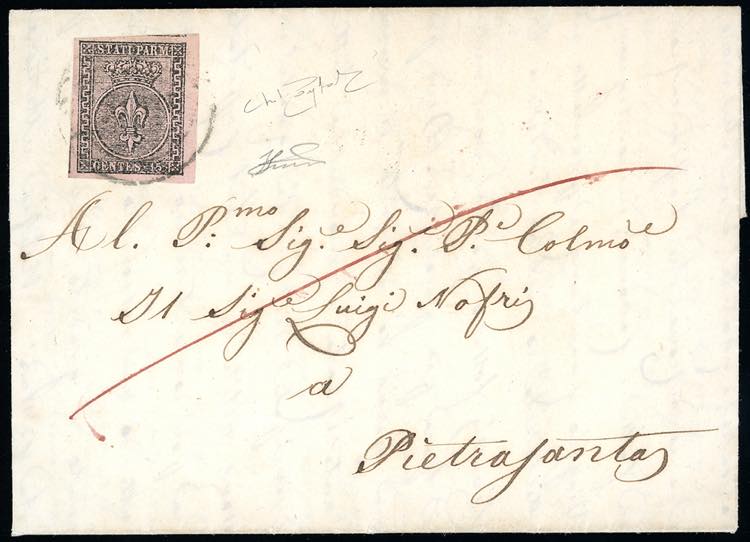 STATI PARM.
CENTES. 15
Al. P.mo Sig.e Sig.e P.e Colmo
Il Sig.e Luigi Nofri
a
Pietrasanta